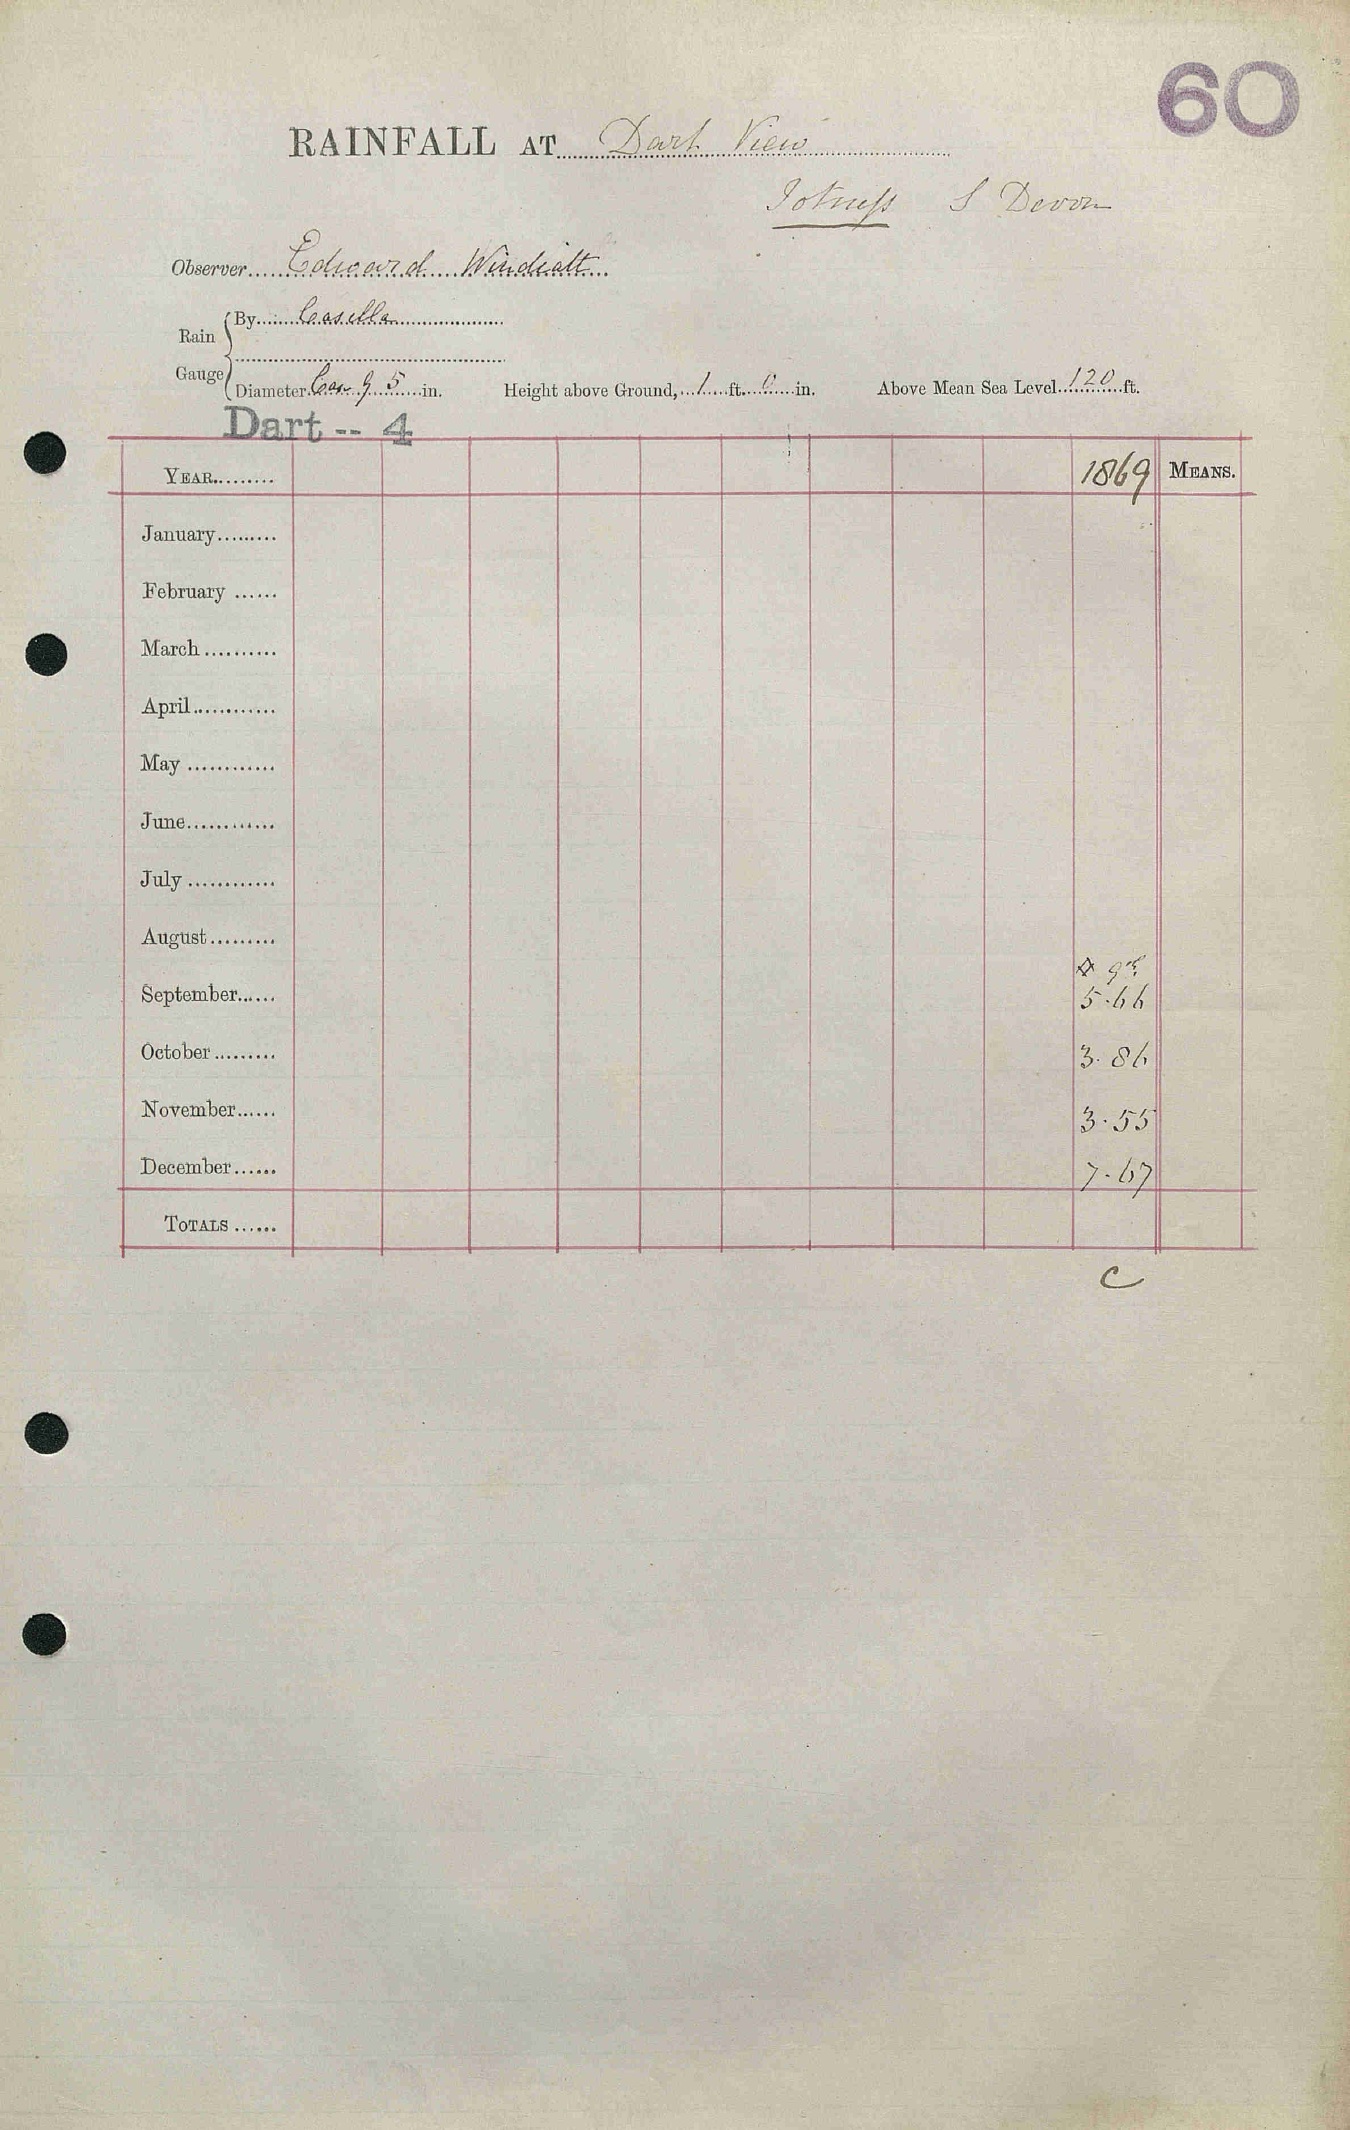 60
RAINFALL AT Dart View
Totness S Devon
Observer Edward Windeatt
Rain Gauge
By Casella
Diameter 5 in. Height above Ground, 1 ft. 0 in. Above Mean Sea Level 120 ft.
Dart -- 4
YEAR 1869 MEANS.
January
February
March
April
May
June
July
August
September 5.66
October 3.86
November 3.55
December 7.67
TOTALS
C